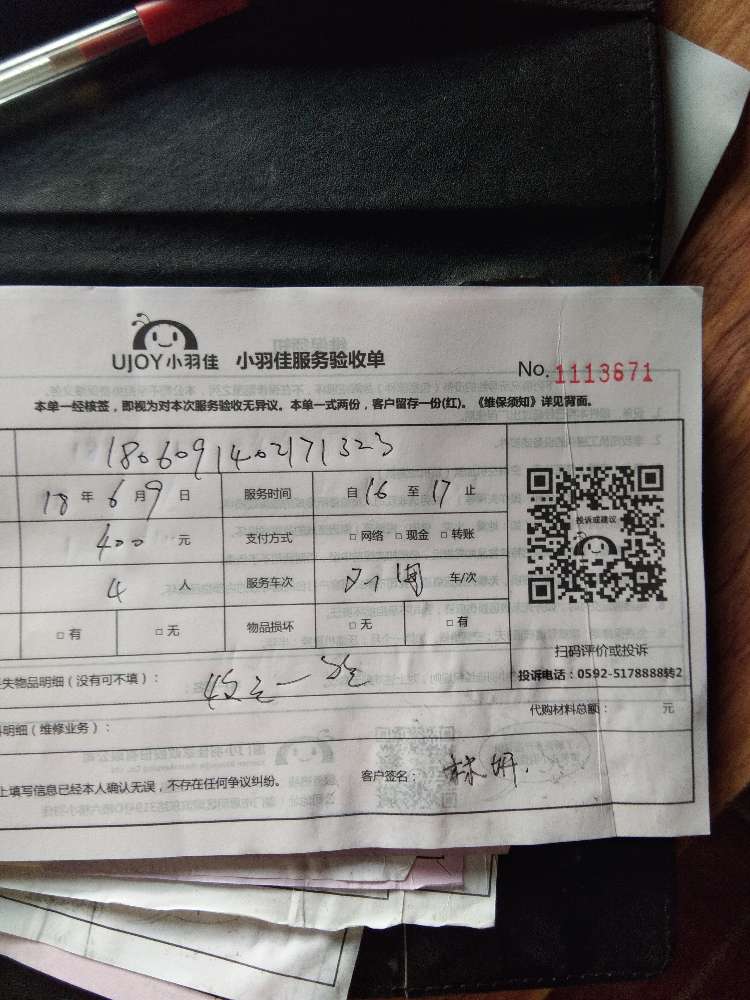 UJOY小羽佳 小羽佳服务验收单
No. 1113671
本单一经核签，即视为对本次服务验收无异议。本单一式两份，客户留存一份(红)。《维保须知》详见背面。
1806091402171323
18 年 6 月 9 日 服务时间 自 16 至 17 止
400 元 支付方式 □ 网络 □ 现金 □ 转账
4 人 服务车次 车/次
□ 有 □ 无 物品损坏 □ 无 □ 有
投诉或建议
扫码评价或投诉
投诉电话：0592-5178888转2
失物品明细（没有可不填）：
代购材料总额： 元
明细（维修业务）：
上填写信息已经本人确认无误，不存在任何争议纠纷。 客户签名： 林妍